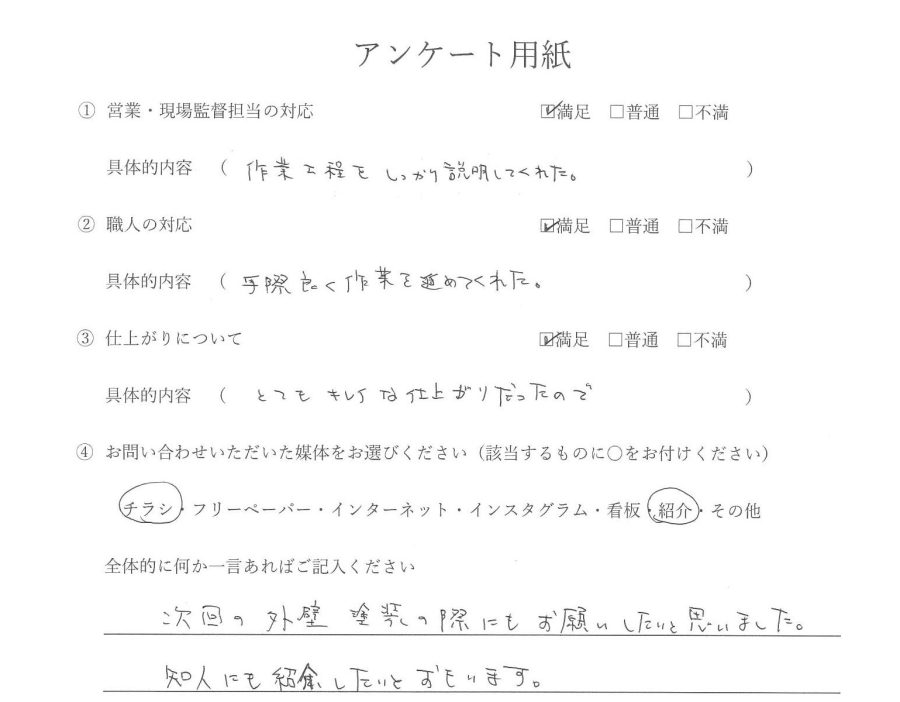 アンケート用紙
① 営業・現場監督担当の対応 ☑満足 □普通 □不満
具体的内容 ( 作業工程をしっかり説明してくれた。 )
② 職人の対応 ☑満足 □普通 □不満
具体的内容 ( 手際良く作業を進めてくれた。 )
③ 仕上がりについて ☑満足 □普通 □不満
具体的内容 ( とてもキレイな仕上がりだったので )
④ お問い合わせいただいた媒体をお選びください（該当するものに○をお付けください）
チラシ・フリーペーパー・インターネット・インスタグラム・看板・紹介・その他
全体的に何か一言あればご記入ください
次回の外壁塗装の際にもお願いしたいと思いました。
知人にも紹介したいとおもいます。